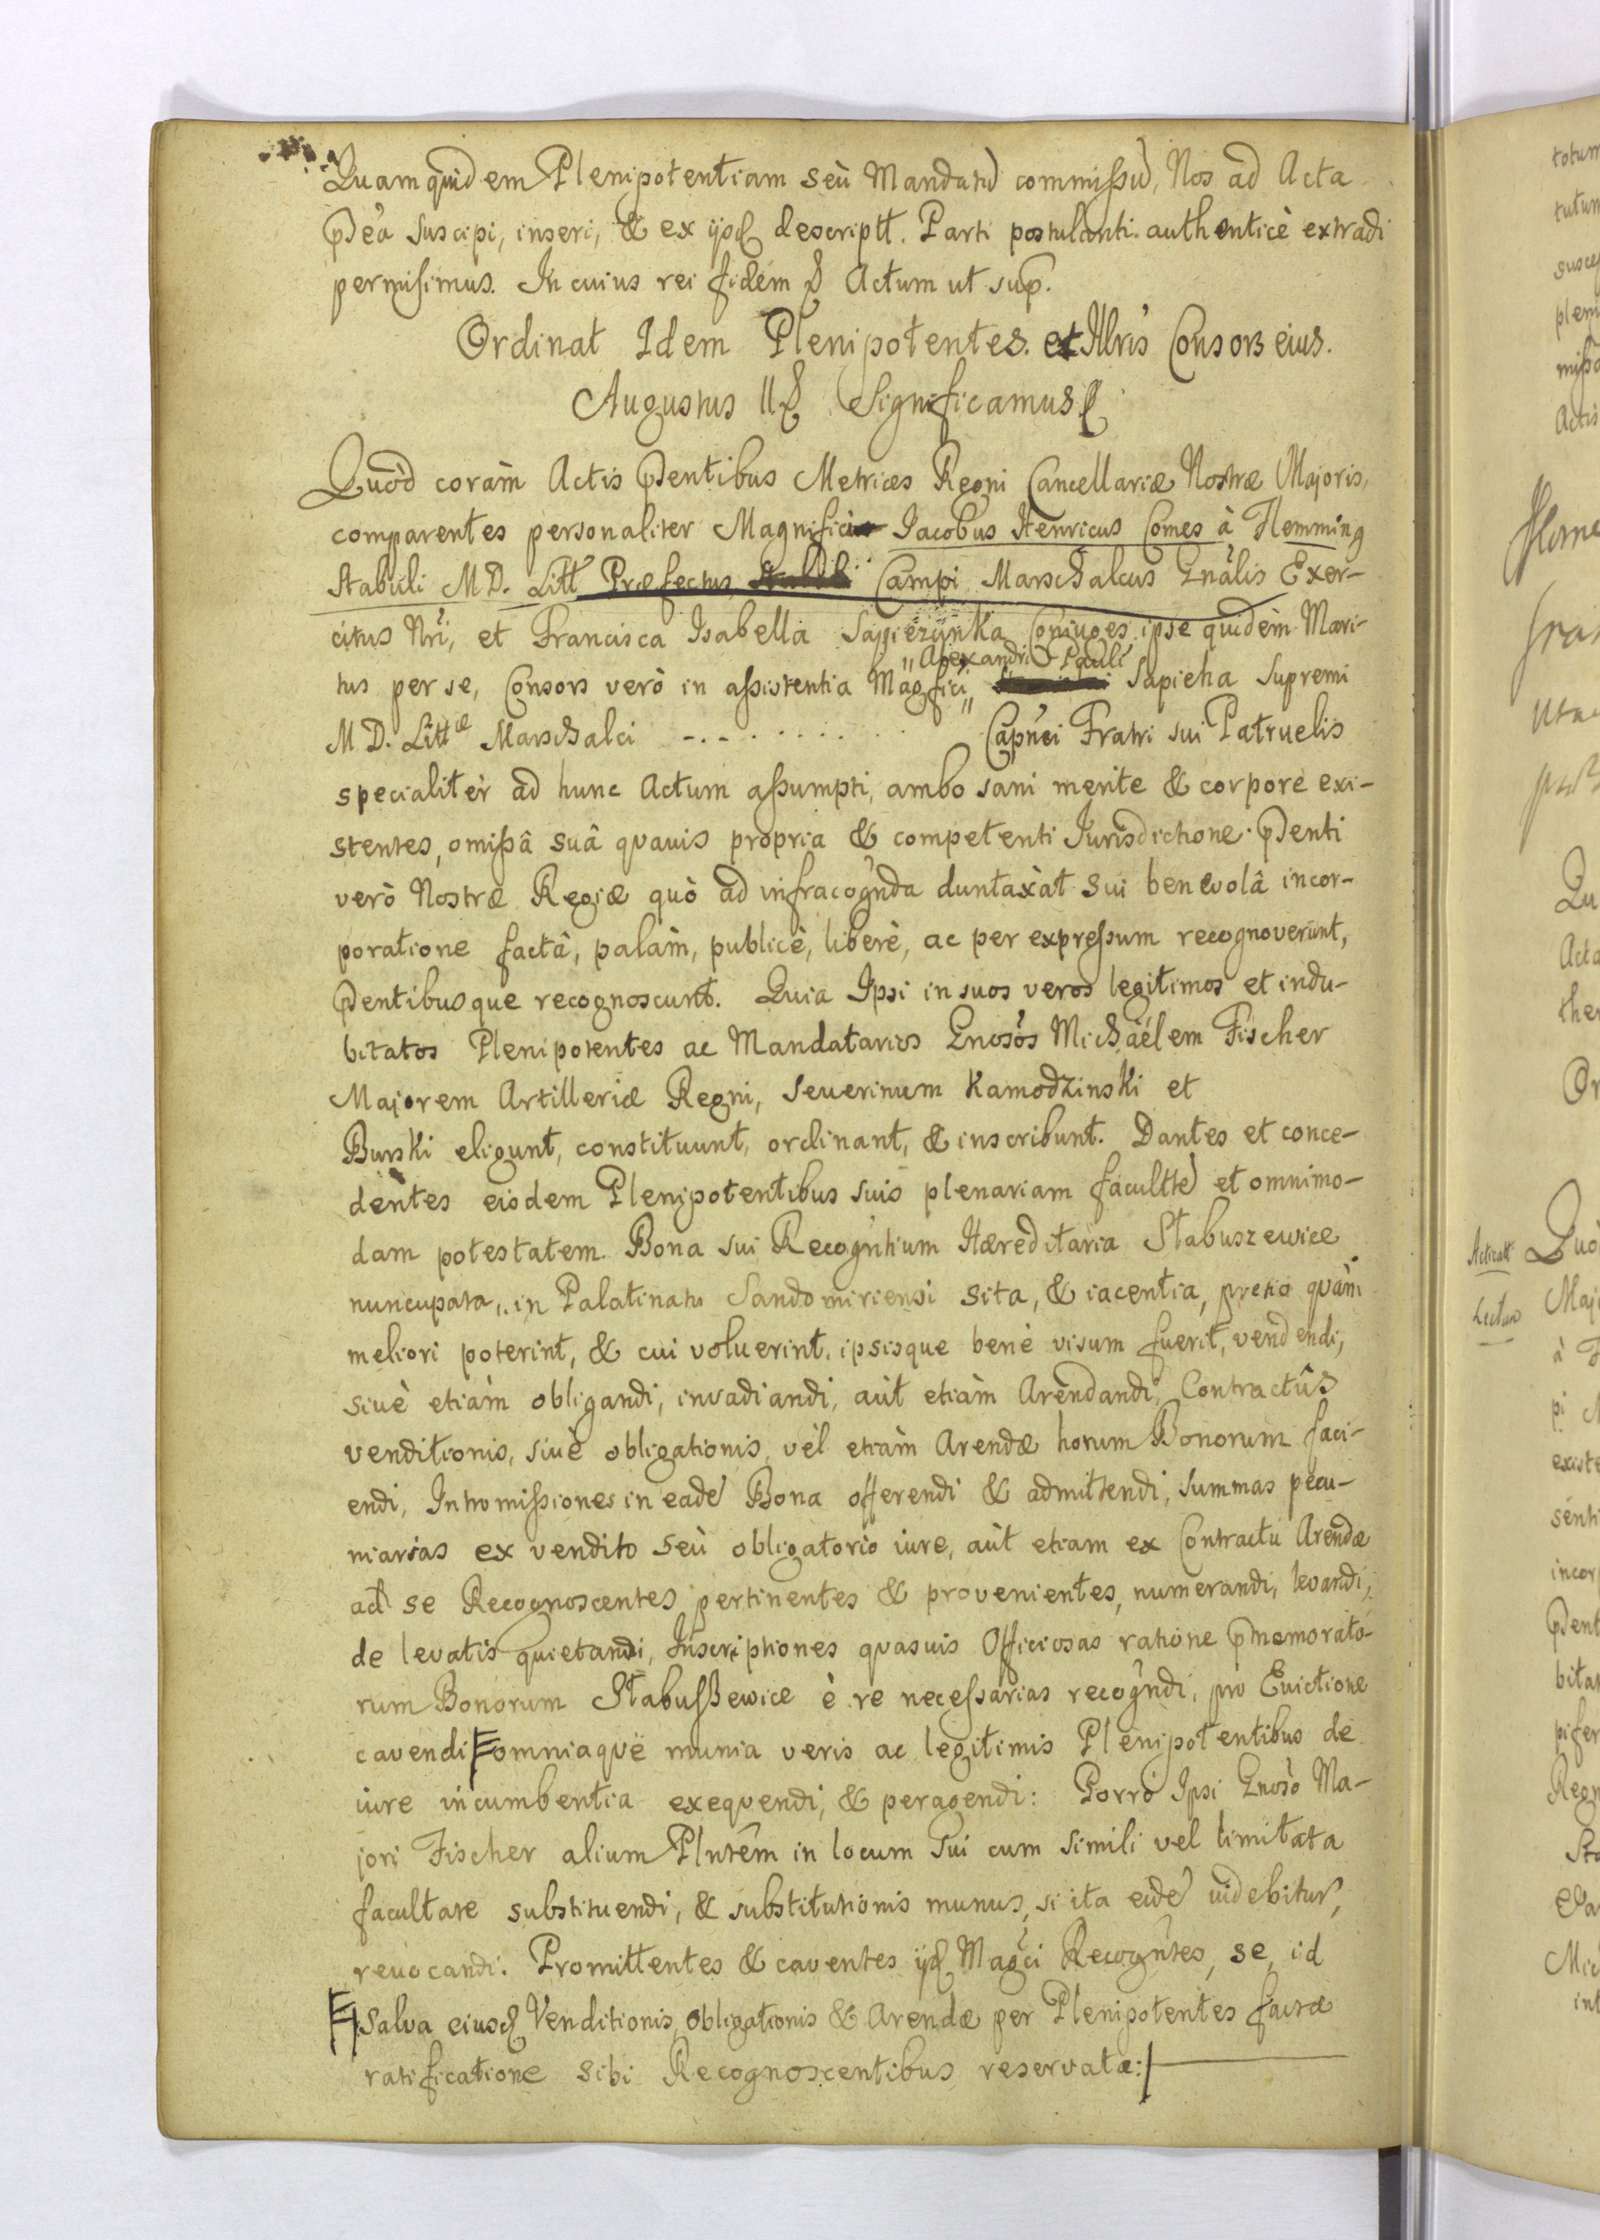 Quam quidem Plenipotentiam seù Mandatu commissu, Nos ad Acta
Pñea suscipi, inseri, & ex ijsd descriptt. Parti postulanti authenticè extradi
permisimus. In cuius rei fidem & Actum ut sup.
Ordinat Idem Plenipotentes. et Illris Consors eius.
Augustus II & Significamus &
Quòd coràm Actis Pñtibus Metrices Regni Cancellariæ Nostræ Majoris,
comparentes personaliter Magnifici Iacobus Henricus Comes à Flemming
Stabuli M D. Litt Præfectus Campi Marschalcus Gnâlis Exer-
citus Nri, et Francisca Isabella Sapiezynka Coniuges ipse quidèm Mari-
tus per se, Consors verò in assistentia Magfici „Alexandri Pauli„ Sapieha Supremi
M D. Littæ Marschalci -.-....... Capnei Fratri sui Patruelis
specialitèr ad hunc Actum assumpti, ambo sani mente & corpore exi-
stentes, omissâ suâ quavis propria & competenti Iurisdictione. Pñti
verò Nostræ Regiæ quò ad infracognda duntaxàt sui benevolâ incor-
poratione factâ, palàm, publicè, liberè, ac per expressum recognoverunt,
Pñtibusque recognoscunt. Quia Ipsi in suos veros legitimos et indu-
bitatos Plenipotentes ac Mandatarios Gnosos Michaëlem Fischer
Majorem Artilleriæ Regni, Severinum Kamodzinski et
Burski eligunt, constituunt, ordinant, & inscribunt. Dantes et conce-
dentes eisdem Plenipotentibus suis plenariam facultte et omnimo-
dam potestatem. Bona sui Recogntium Hæreditaria Stabuszewice
nuncupata, in Palatinatu Sandomiriensi sita, & iacentia, pretio quàm
meliori poterint, & cui voluerint, ipsisque benè visum fuerit, vendendi,
sivè etiàm obligandi, invadiandi, aùt etiàm Arendandi, Contractûs
venditionis, sivè obligationis, vèl etiàm Arendæ horum Bonorum faci-
endi, Intromissiones in eade Bona offerendi & admittendi, summas pecu-
niarias ex vendito seù obligatorio iure, aùt etiam ex Contractu Arendæ
ad se Recognoscentes pertinentes & provenientes, numerandi, levandi,
de levatis quietandi, Inscriptiones quasuis Officiosas ratione pmemorato-
rum Bonorum Stabussewice è re necessarias recogndi, pro Evictione
cavendi omniaquè munia veris ac legitimis Plenipotentibus de
iure incumbentia exequendi, & peragendi: Porrò Ipsi Gnoso Ma-
jori Fischer alium Plntêm in locum sui cum simili vel limitata
facultate substituendi, & substitutionis munus, si ita eide videbitur,
revocandi. Promittentes & caventes ijd Magci Recogntes, se, id
Salva eiusd Venditionis, obligationis & Arendæ per Plenipotentes factæ
ratificatione sibi Recognoscentibus reservatæ: